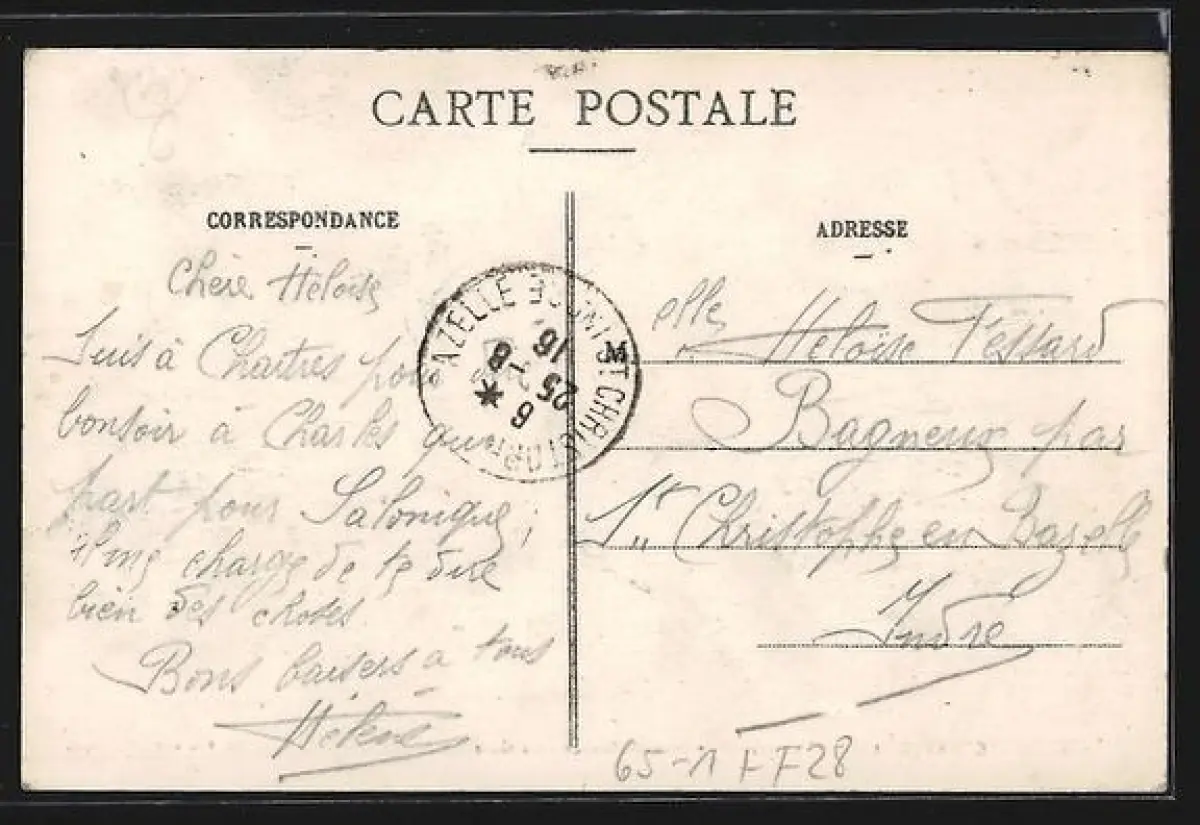 CARTE POSTALE
CORRESPONDANCE
Chère Héloïse
Suis à Chartres pour
bonsoir à Charles qui
part pour Salonique;
il me charge de te dire
bien des choses.
Bons baisers à tous
Hélène
ADRESSE
elle
Héloïse Tessard
Bagneux par
St Christophe en Bazelle
Indre
AZELLE
ST CHRISTOPH
6
25
16
8
65-1 FF28